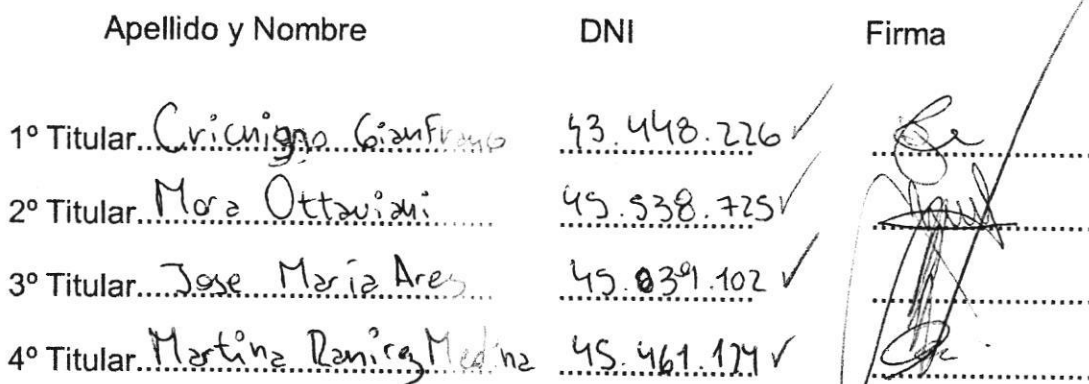 Apellido y Nombre DNI Firma
1º Titular Cricnigno Gianfranco 43.448.226
2º Titular Mora Ottaviani 45.538.725
3º Titular Jose Maria Ares 45.039.102
4º Titular Martina Ramirez Medina 45.461.174